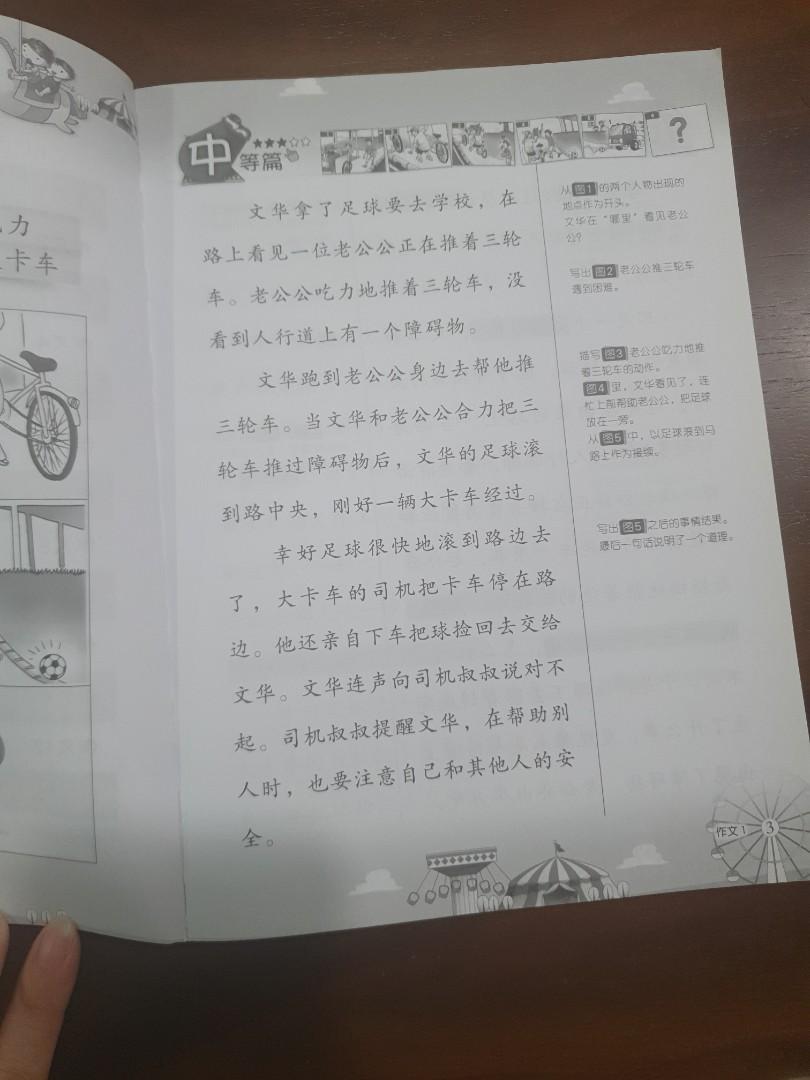 力
卡车
中等篇
?
文华拿了足球要去学校，在
路上看见一位老公公正在推着三轮
车。老公公吃力地推着三轮车，没
看到人行道上有一个障碍物。
文华跑到老公公身边去帮他推
三轮车。当文华和老公公合力把三
轮车推过障碍物后，文华的足球滚
到路中央，刚好一辆大卡车经过。
幸好足球很快地滚到路边去
了，大卡车的司机把卡车停在路
边。他还亲自下车把球捡回去交给
文华。文华连声向司机叔叔说对不
起。司机叔叔提醒文华，在帮助别
人时，也要注意自己和其他人的安
全。
从图1的两个人物出现的
地点作为开头。
文华在“哪里”看见老公
公？
写出图2老公公推三轮车
遇到困难。
描写图3老公公吃力地推
着三轮车的动作。
图4里，文华看见了，连
忙上前帮助老公公，把足球
放在一旁。
从图5中，以足球滚到马
路上作为接续。
写出图5之后的事情结果。
最后一句话说明了一个道理。
作文1
3